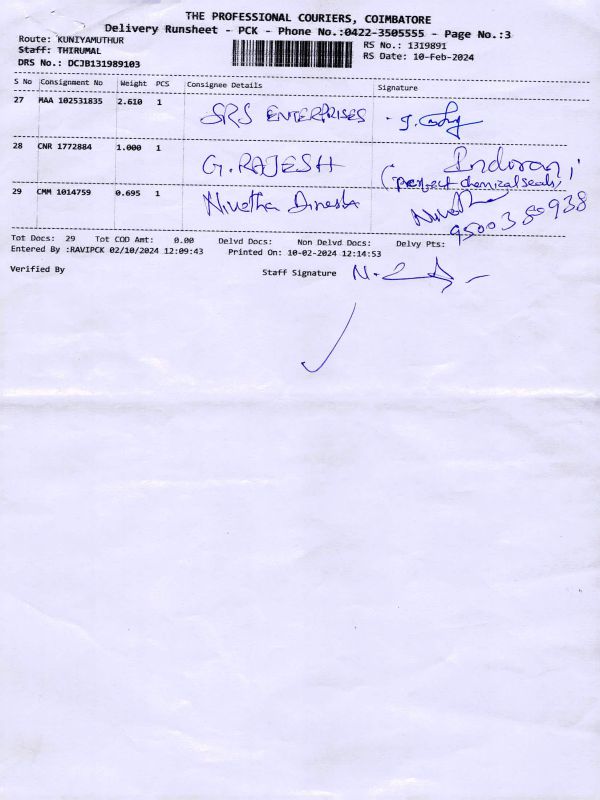 THE PROFESSIONAL COURIERS, COIMBATORE
Delivery Runsheet - PCK - Phone No.:0422-3505555 - Page No.:3
Route: KUNIYAMUTHUR RS No.: 1319891
Staff: THIRUMAL RS Date: 10-Feb-2024
DRS No.: DCJB131989103
S No Consignment No Weight PCS Consignee Details Signature
27 MAA 102531835 2.610 1 SRS ENTERPRISES
28 CNR 1772884 1.000 1 G. RAJESH
(perfect chemical seals)
29 CMM 1014759 0.695 1 Nivetha Dinesh Nivetha
9500380938
Tot Docs: 29 Tot COD Amt: 0.00 Delvd Docs: Non Delvd Docs: Delvy Pts:
Entered By :RAVIPCK 02/10/2024 12:09:43 Printed On: 10-02-2024 12:14:53
Verified By Staff Signature